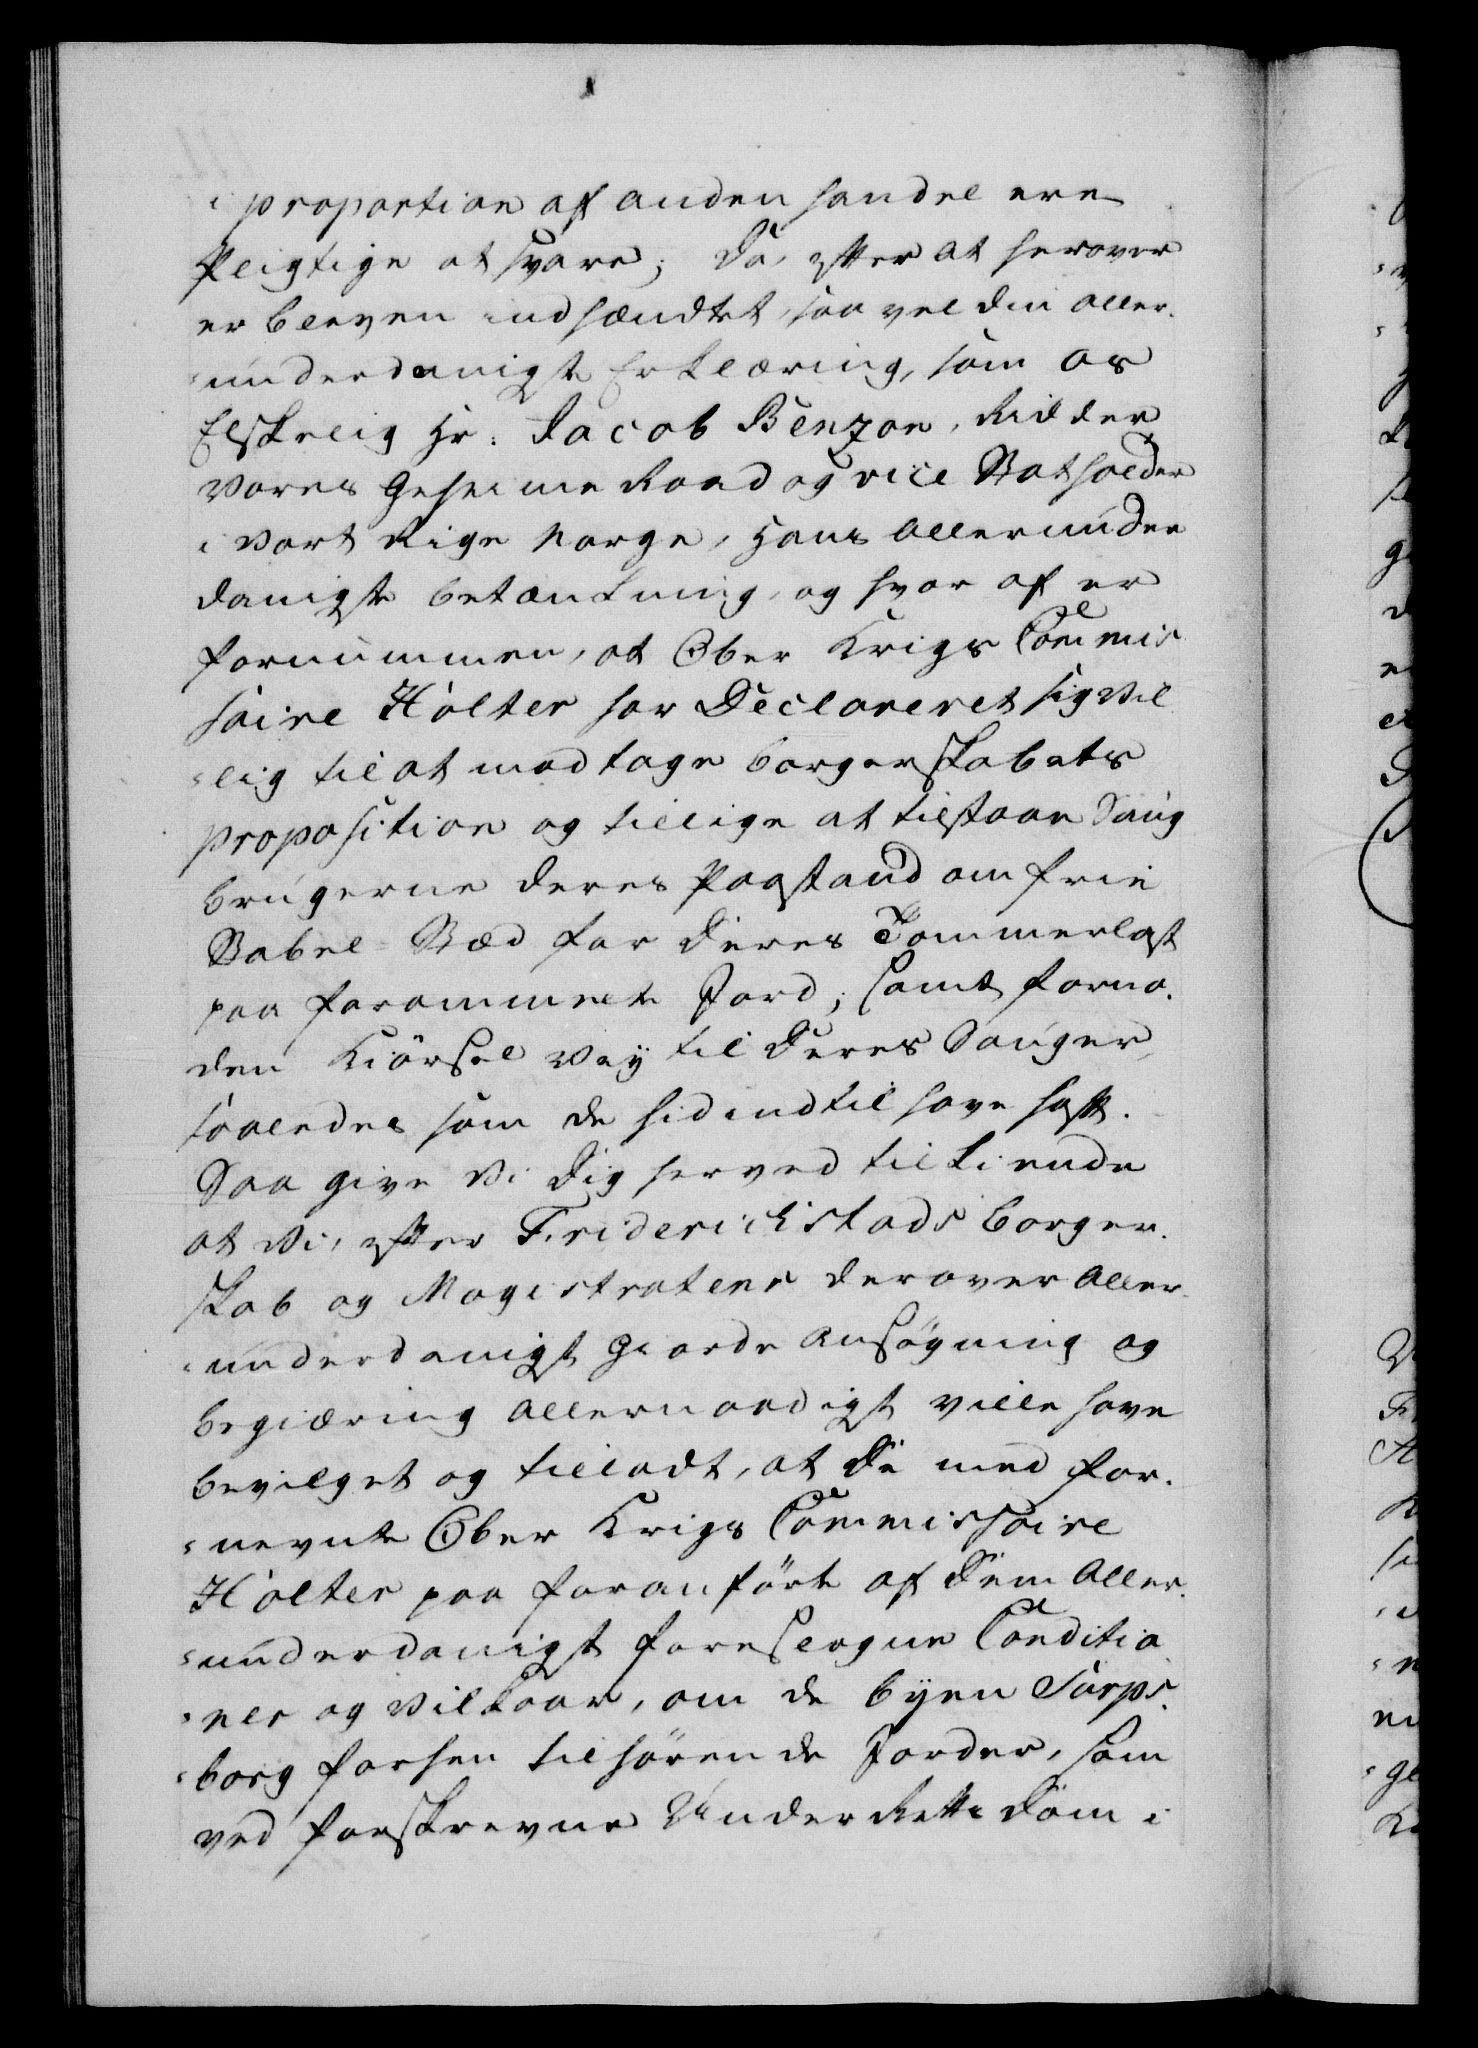 i proportion af anden handel ere
Pligtige at svare; Da, efter at herover
er bleven indhændtet, saa vel din aller-
underdanigste Erklæring, som os
Elskelig Hr: Jacob Benzon, Ridder
Vores Geheime Raad og vice Statholder
i Vort Rige Norge, Hans allerunder
danigste betænkning, og hvor af er
fornummen, at Ober Krigs Commis
saire Holter har Declareret sig vil
-lig til at modtage borgerskabets
proposition og tillige at tilstaae Saug
brugerne deres Paastand om frie
Stabel Stæd for deres Tommerlast
paa forommelte Jord; samt fornø-
den Kiörsel Vej til deres Sauger,
saaledes som de hid indtil have hafft.
Saa give Vi dig herved tilkiende
at Vi, efter Friderichstads borger-
skab og Magistratens derover aller-
-underdanigst giorde ansøgning og
begiæring allernaadigst ville have
bevilget og tilladt, at de med for-
-nevnte Ober Krigs Commissaire
Holter paa foranförte af dem aller-
-underdanigst foreslagne Conditio
-ner og Vilkaar, om de byen Sarps-
-borg forhen tilhörende Jorder, som
ved forskrevne Under Retts dom i